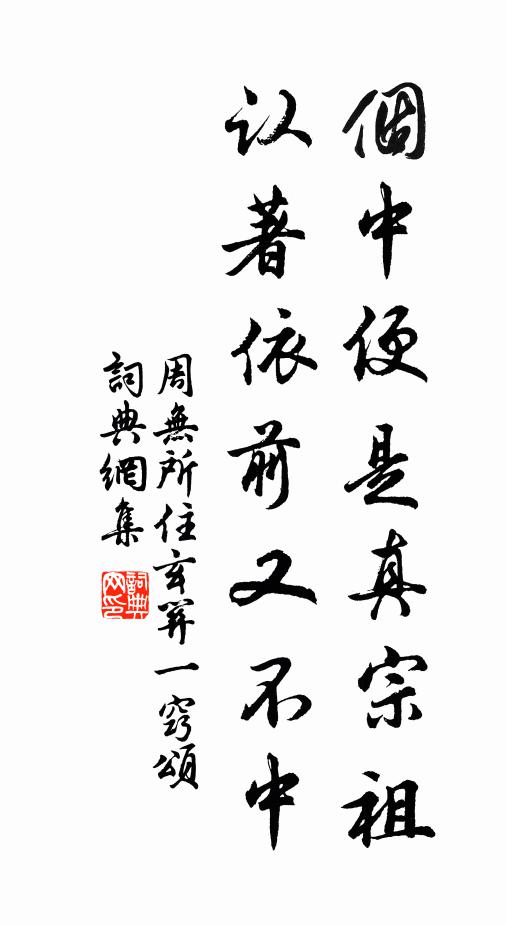 個中便是真宗祖
认著依前又不中
周無所住玄關一竅頌
詞典網集
詞典網印